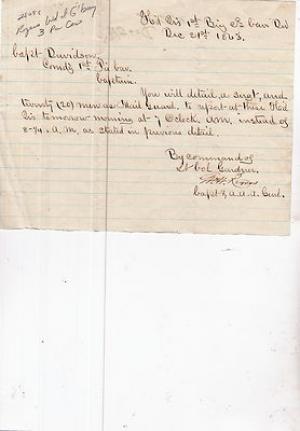 Hd Qrs 1st Brig 2d Cav Div
Dec 21st 1863.
Capt Davidson,
Comdg 1st Pa Cav.
Captain.
You will detail a Sergt, and
twenty (20) men as Mail Guard, to report at these Hd
Qrs tomorrow morning at 7 O'clock, A.M. instead of
A.M. as stated in previous detail.
By command of
Lt Col Gardner
Capt & A.A.A. Genl.